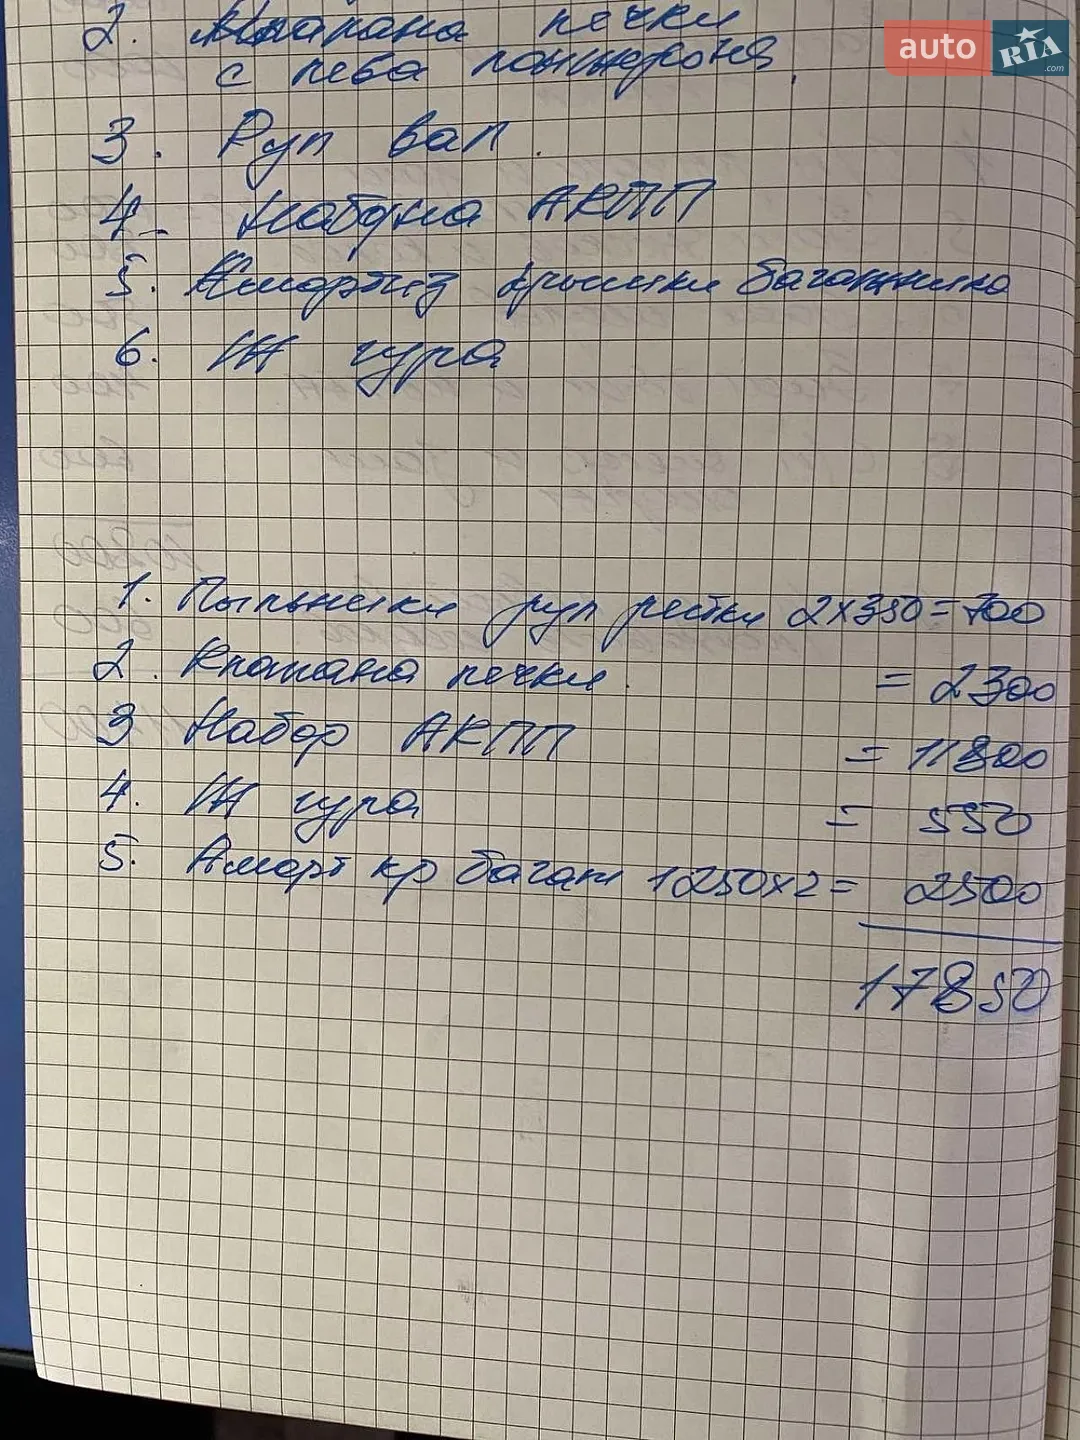 auto RIA .com
2. Клапана печки
с лева понижения
3. Рул вал.
4- Набора АКПП
5. Амортиз крышки багажника
6. ТЖ гура
1. Пыльники рул рейки 2x350=700
2. Клапана печки. = 2300
3 Набор АКПП = 11800
4. ТЖ гура = 550
5. Аморт кр багаж 1250x2= 2500
17850